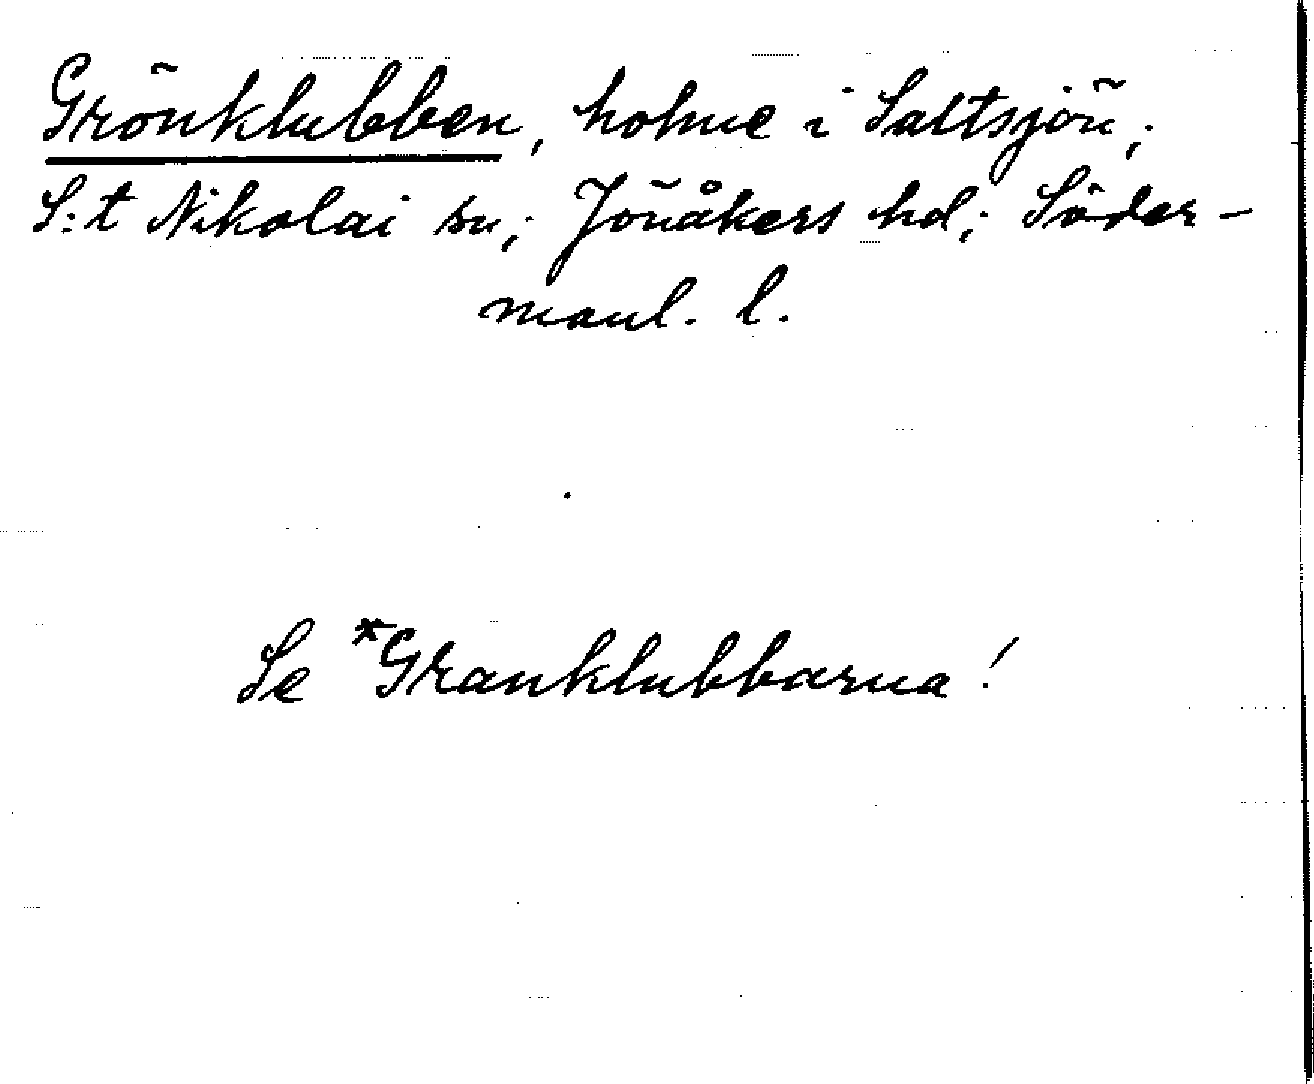 Grönklubben, holme i Saltsjön;
S:t Nikolai sn; Jönåkers hd; Söder-
manl. l.
Se *Granklubbarna!